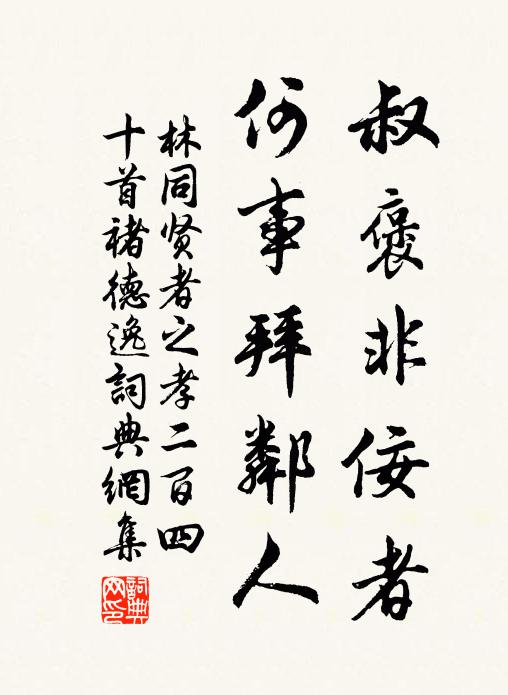 叔褒非佞者
何事拜鄰人
林同贤者之孝二百四
十首褚德逸詞典網集
詞典网印